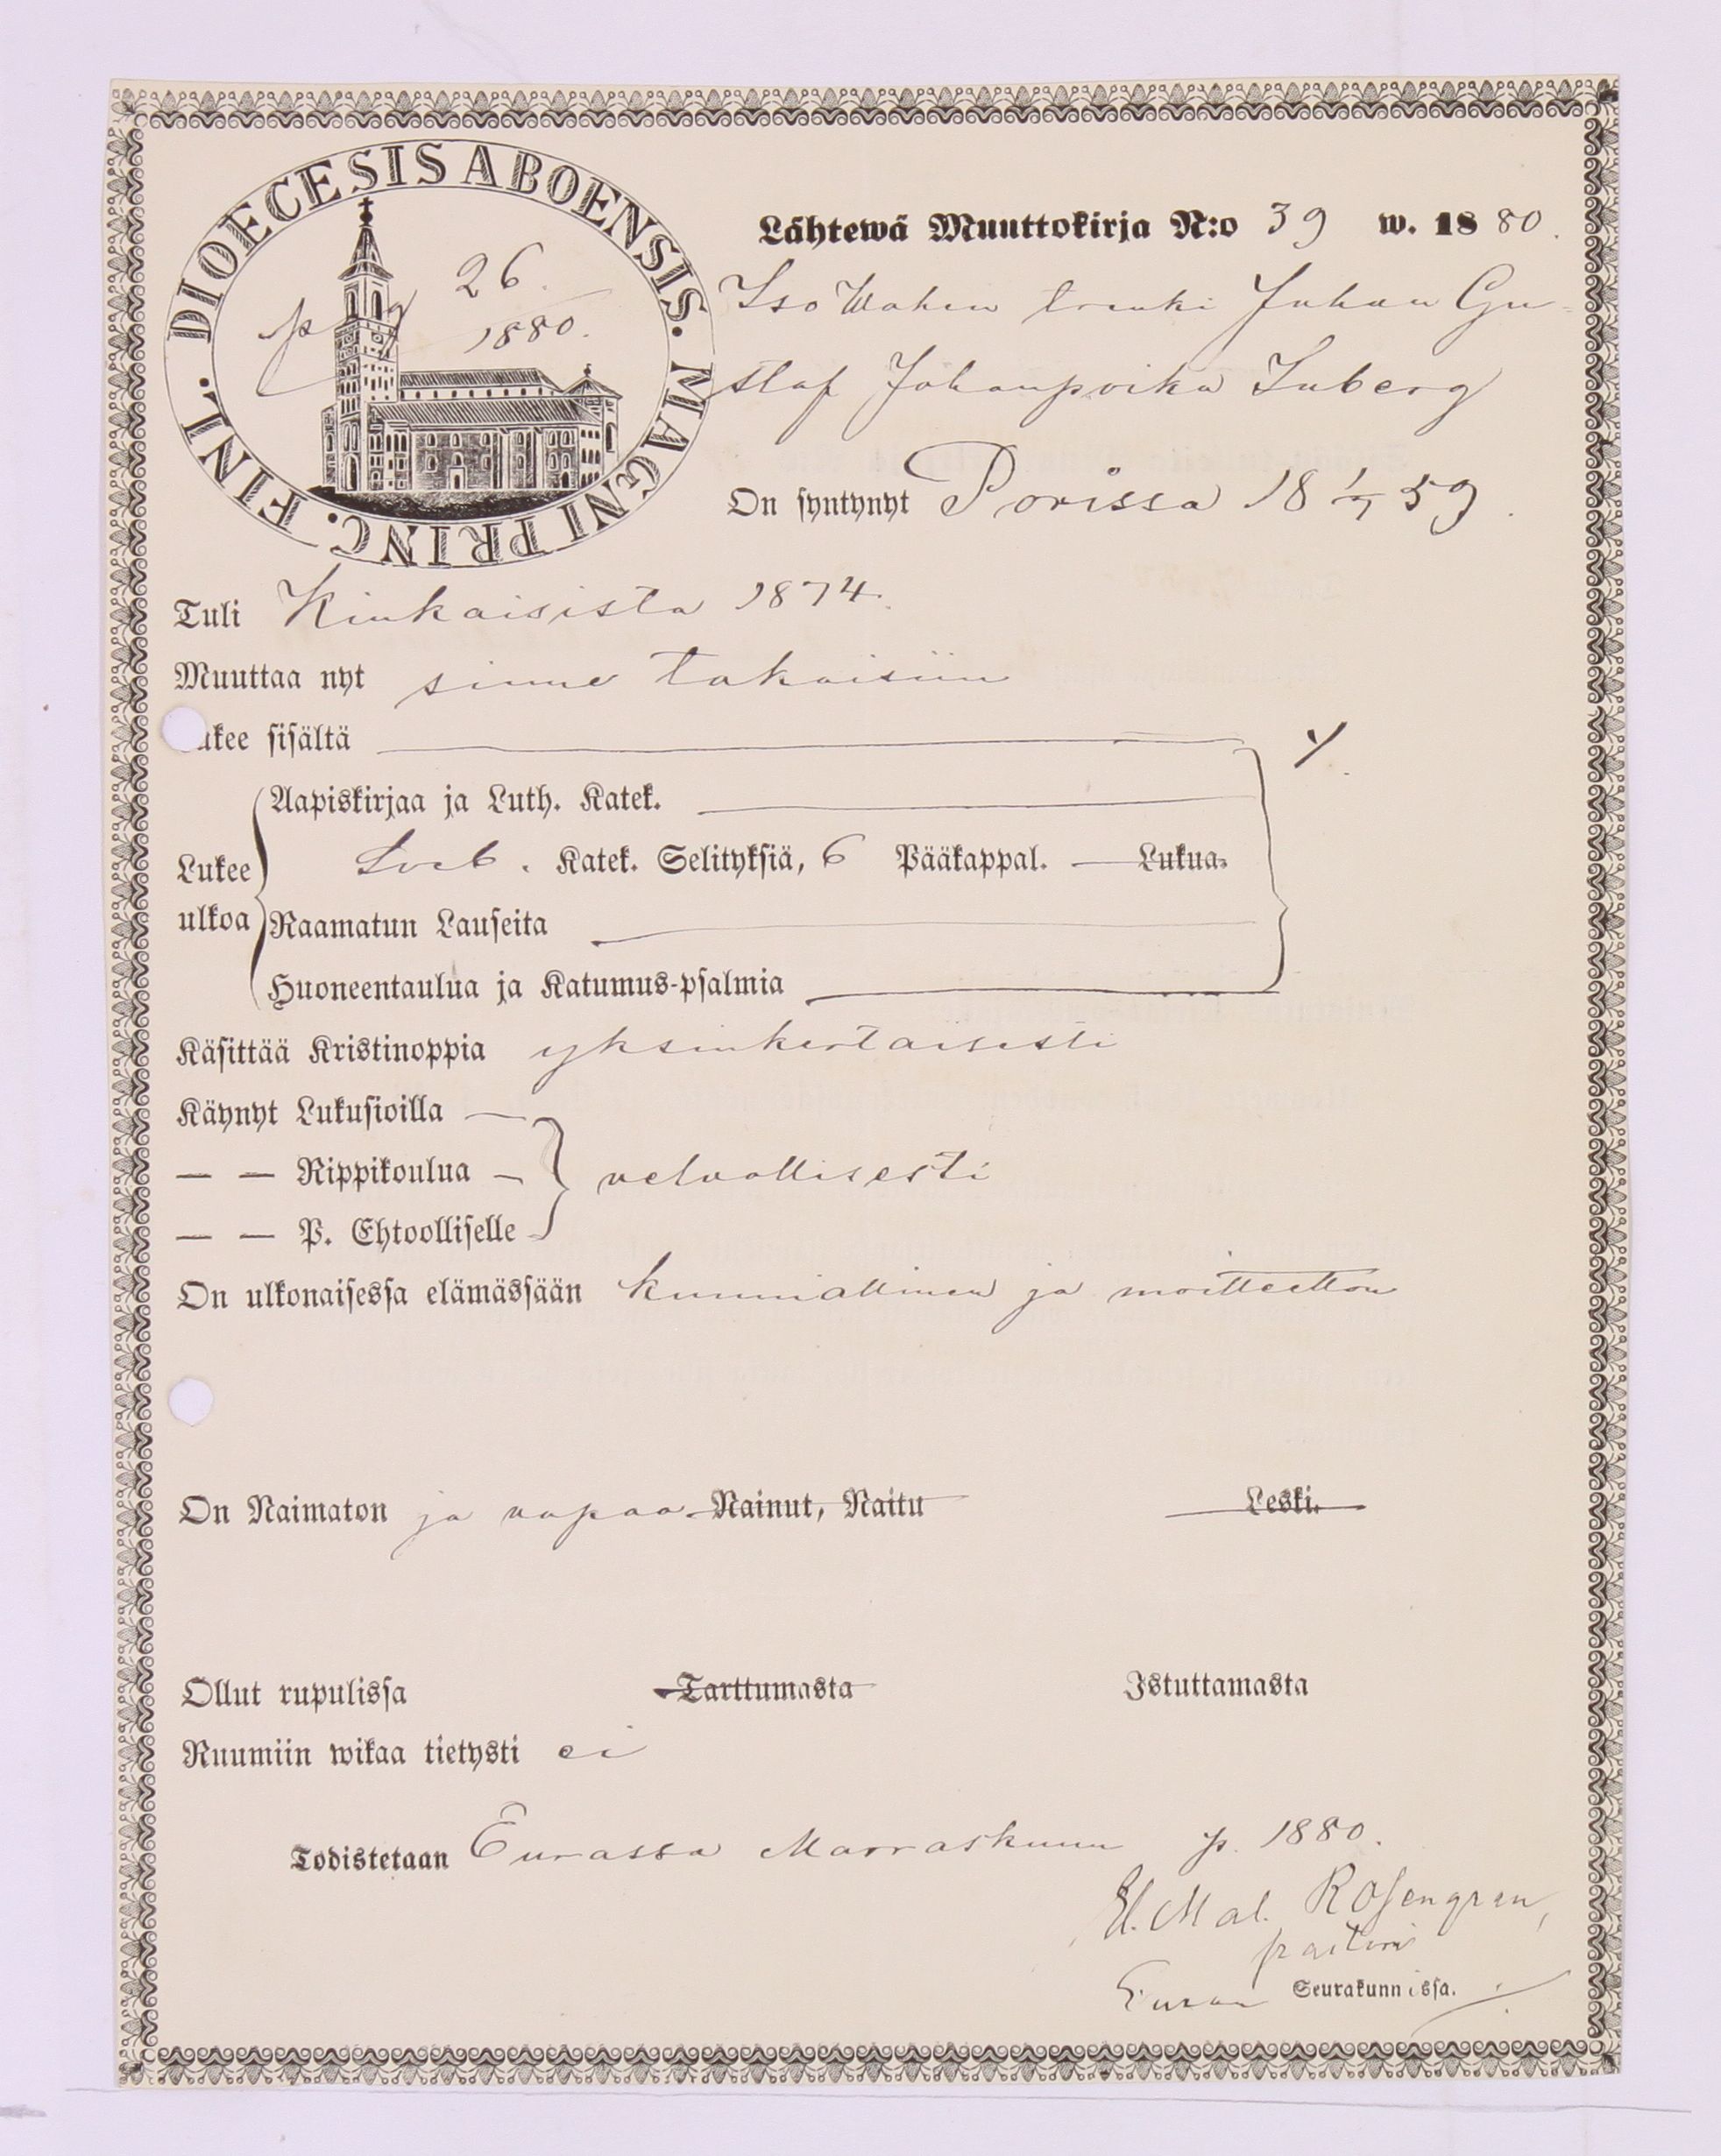 DIOECESIS ABOENSIS. MAGNI PRINC. FINL.
26.
1880.
Lähtewä Muuttokirja N:o 39 w. 1880.
Iso Wahen trenki Juhan Gu-
staf Johanpoika Inberg
On syntynyt Porissa 18 1/7 59.
Tuli Kiukaisista 1874.
Muuttaa nyt sinne takaisiin
ukee sisältä
Aapiskirjaa ja Luth. Katek.
Lukee ulkoa
Katek. Selityksiä, 6 Pääkappal. Lukua.
Raamatun Lauseita
Huoneentaulua ja Katumus-psalmia
Käsittää Kristinoppia yksinkertaisesti
Käynyt Lukusioilla
— — Rippikoulua — velvollisesti
— — P. Ehtoolliselle
On ulkonaisessa elämässään kunniallinen ja moitteetton
On Naimaton ja vapaa Nainut, Naitu Leski.
Ollut rupulissa Tarttumasta Istuttamasta
Ruumiin wikaa tietysti ei
Todistetaan Eurassa Marraskuun p. 1880.
Mal. Rosengren,
Euran Seurakunnissa.